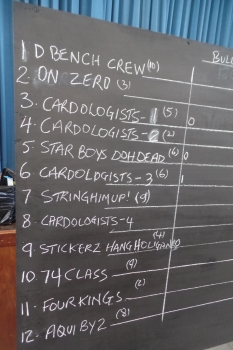 BULL
1 D BENCH CREW (10)
2. ON ZERO (3)
3. CARDOLOGISTS-1 (5) 0
4. CARDOLOGISTS-2 (2)
5 STAR BOYS DOHDEAD (6) 0
6 CARDOLOGISTS-3 (6) 1
7 STRINGHIMUP! (9)
8 CARDOLOGISTS-4
9 STICKERZ
10 74 CLASS
11. FOUR KINGS
12. AQUIBYZ (8)